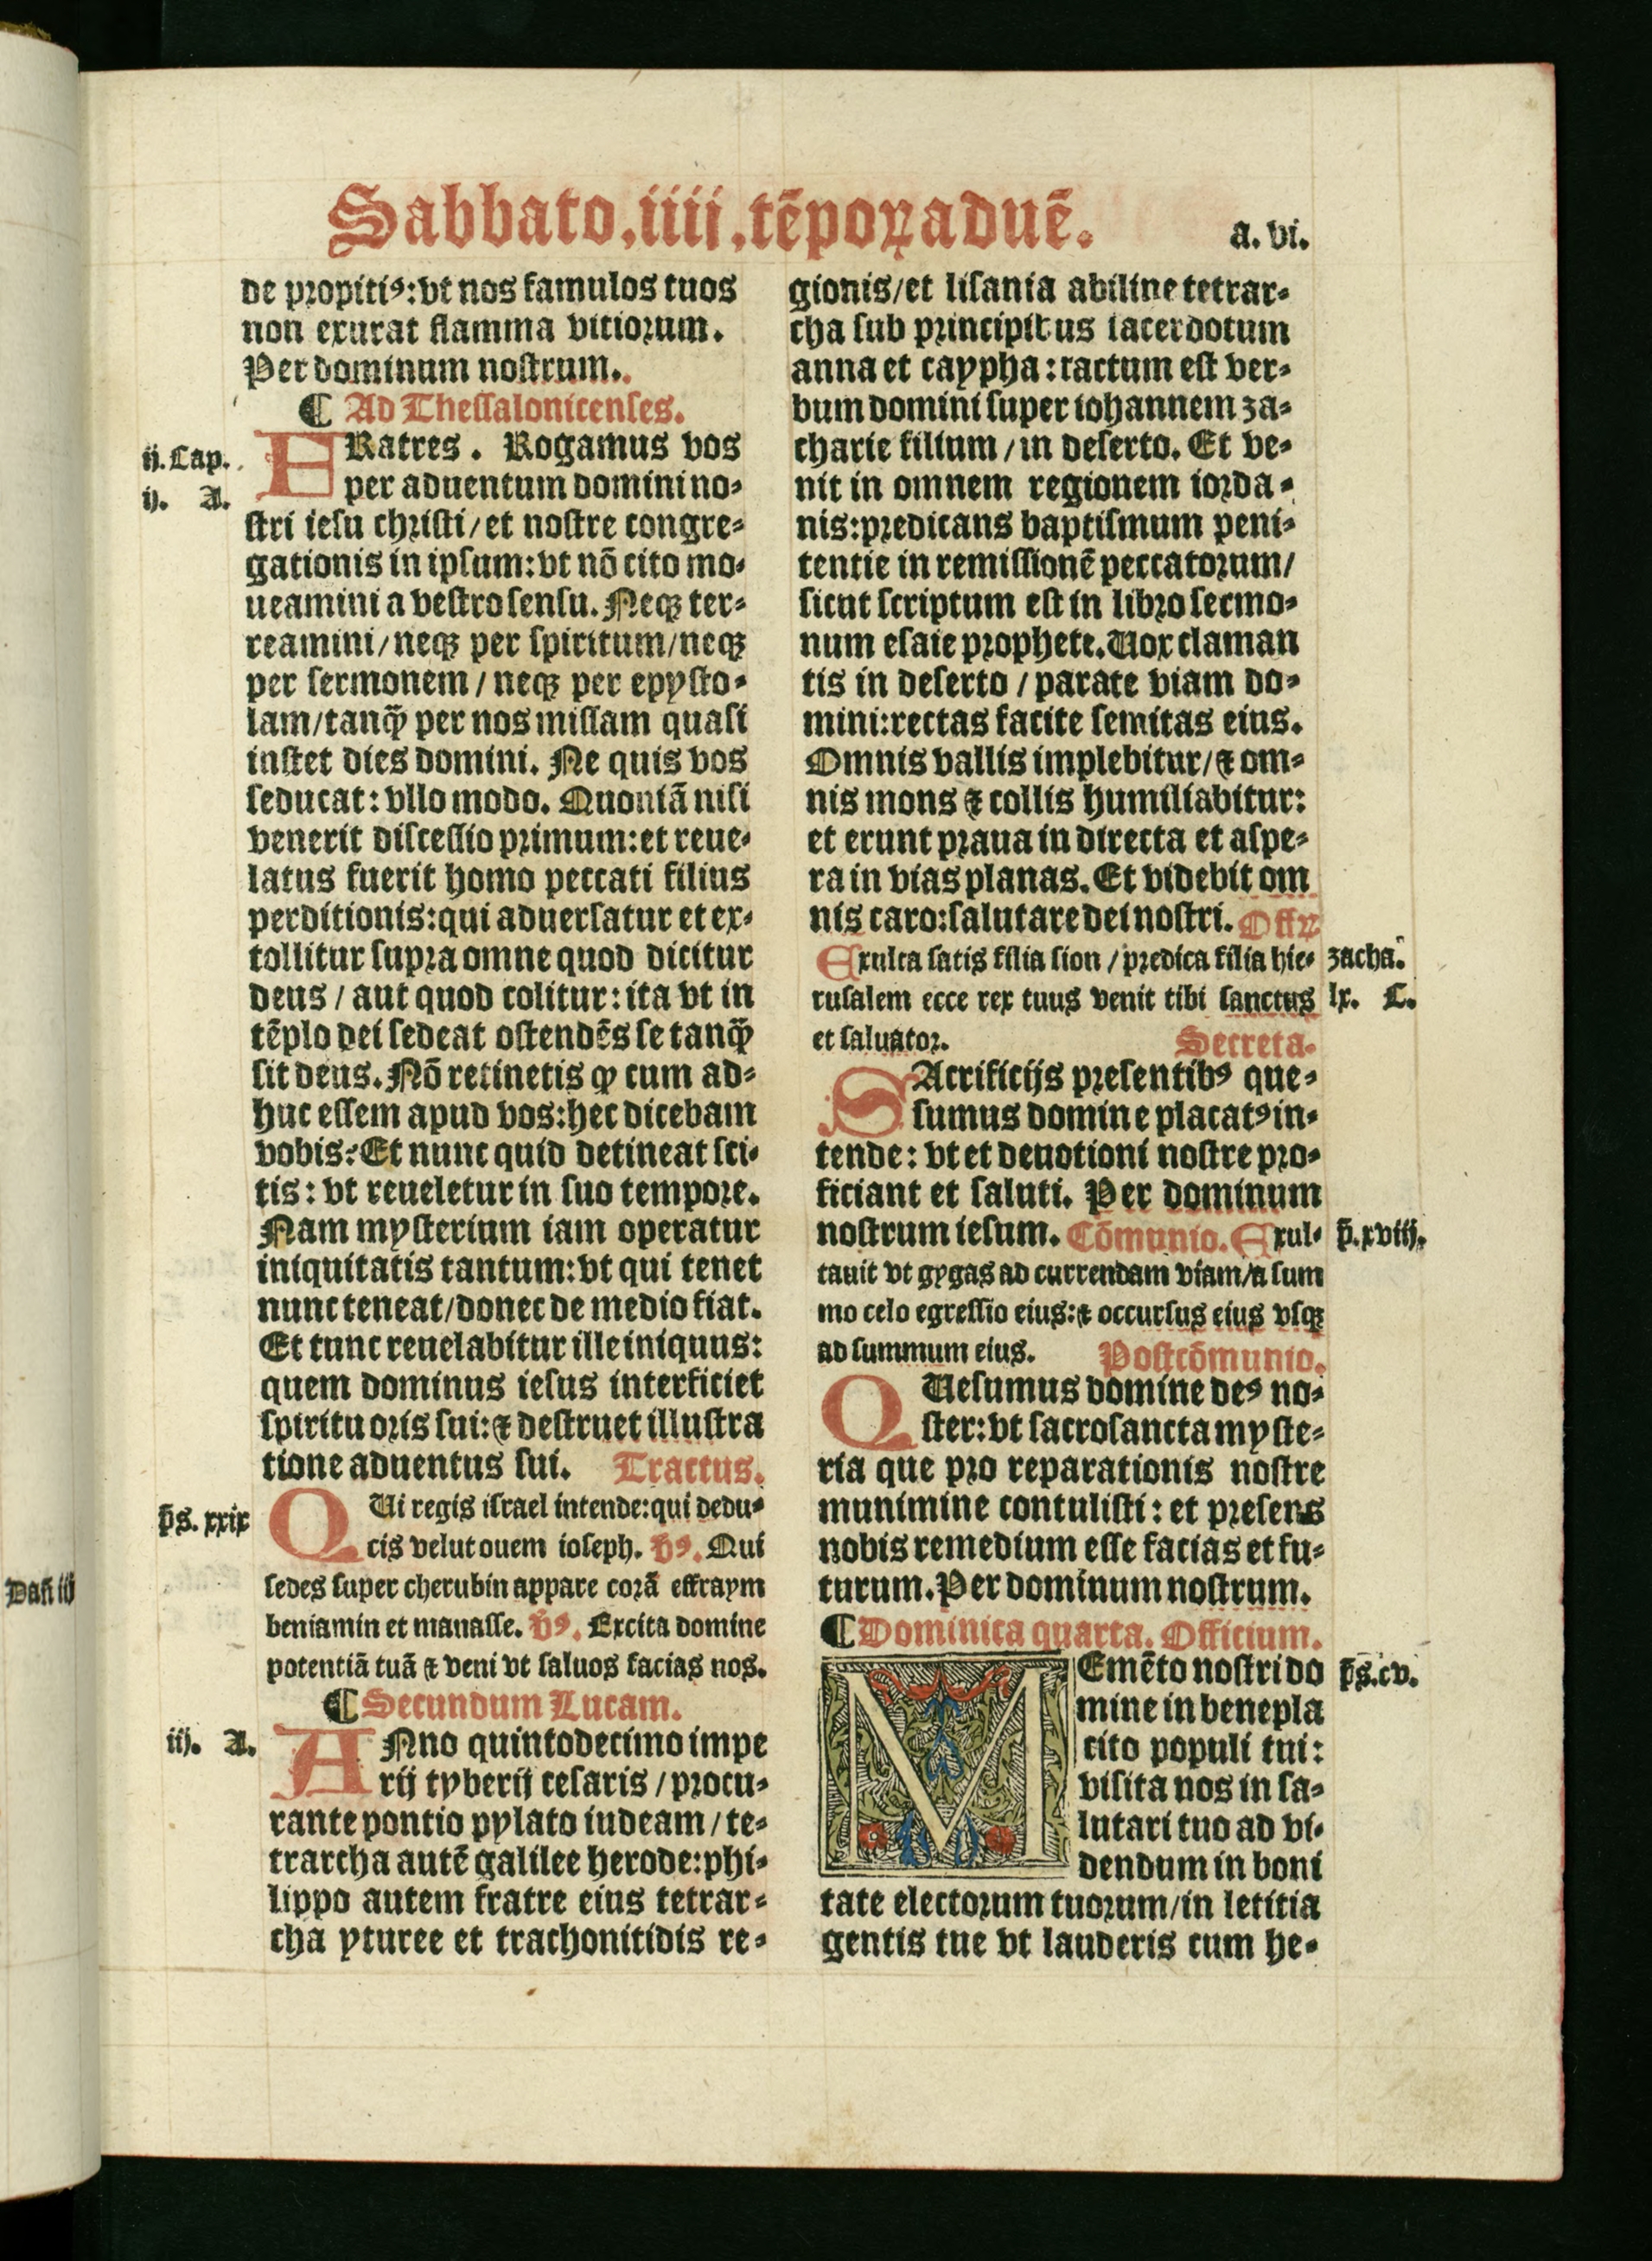 Sabbato.iiii.tēpoꝝ aduē.
a. vi.
de propitiꝰ: vt nos famulos tuos
non exurat flamma vitiorum.
Per dominum nostrum.
¶ Ad Thessalonicenses.
ij. Cap.
ij. A.
FRatres. Rogamus vos
per aduentum domini no-
stri iesu christi/et nostre congre-
gationis in ipsum: vt nō cito mo-
ueamini a vestro sensu. Neqꝫ ter-
reamini/neqꝫ per spiritum/neqꝫ
per sermonem/neqꝫ per epysto-
lam/tanꝙ̄ per nos missam quasi
instet dies domini. Ne quis vos
seducat: vllo modo. Quoniā nisi
venerit discessio primum: et reue-
latus fuerit homo peccati filius
perditionis: qui aduersatur et ex-
tollitur supra omne quod dicitur
deus/aut quod colitur: ita vt in
tēplo dei sedeat ostendēs se tanꝙ̄
sit deus. Nō retinetis ꝙ cum ad-
huc essem apud vos: hec dicebam
vobis: Et nunc quid detineat sci-
tis: vt reueletur in suo tempore.
Nam mysterium iam operatur
iniquitatis tantum: vt qui tenet
nunc teneat/donec de medio fiat.
Et tunc reuelabitur ille iniquus:
quem dominus iesus interficiet
spiritu oris sui: ⁊ destruet illustra
tione aduentus sui. Tractus.
p̄s. xxix
QUi regis israel intende: qui dedu-
cis velut ouem ioseph. v̄ꝰ. Qui
sedes super cherubin appare corā effraym
beniamin et manasse. v̄ꝰ. Excita domine
potentiā tuā ⁊ veni vt saluos facias nos.
¶ Secundum Lucam.
iij. A.
ANno quintodecimo impe
rij tyberij cesaris/procu-
rante pontio pylato iudeam/te-
trarcha autē galilee herode: phi-
lippo autem fratre eius tetrar-
cha yturee et trachonitidis re-
gionis/et lisania abiline tetrar-
cha sub principibus sacerdotum
anna et caypha: factum est ver-
bum domini super iohannem za-
charie filium/in deserto. Et ve-
nit in omnem regionem iorda-
nis: predicans baptismum peni-
tentie in remissionē peccatorum/
sicut scriptum est in libro sermo-
num esaie prophete. Uox claman
tis in deserto/parate viam do-
mini: rectas facite semitas eius.
Omnis vallis implebitur/⁊ om-
nis mons ⁊ collis humiliabitur:
et erunt praua in directa et aspe-
ra in vias planas. Et videbit om
nis caro: salutare dei nostri. Offꝝ
Exulta satis filia sion/predica filia hie-
zacha.
rusalem ecce rex tuus venit tibi sanctus
ix. C.
et saluator. Secreta.
SAcrificijs presentibꝰ que-
sumus domine placatꝰ in-
tende: vt et deuotioni nostre pro-
ficiant et saluti. Per dominum
nostrum iesum. Cōmunio. Exul-
p̄. xviij.
tauit vt gygas ad currendam viam/a sum
mo celo egressio eius: ⁊ occursus eius vsqꝫ
ad summum eius. Postcōmunio.
QUesumus domine deꝰ no-
ster: vt sacrosancta myste-
ria que pro reparationis nostre
munimine contulisti: et presens
nobis remedium esse facias et fu-
turum. Per dominum nostrum.
¶ Dominica quarta. Officium.
MEmēto nostri do
p̄s. cv.
mine in benepla
cito populi tui:
visita nos in sa-
lutari tuo ad vi-
dendum in boni
tate electorum tuorum/in letitia
gentis tue vt lauderis cum he-
Dañ iij